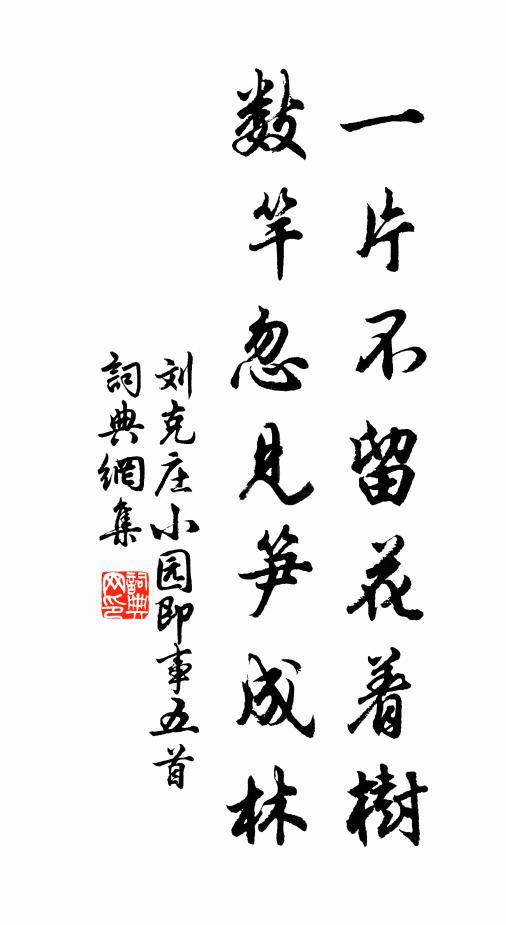 一片不留花着樹
数竿忽見笋成林
刘克庄小园即事五首
詞典網集
詞典網印